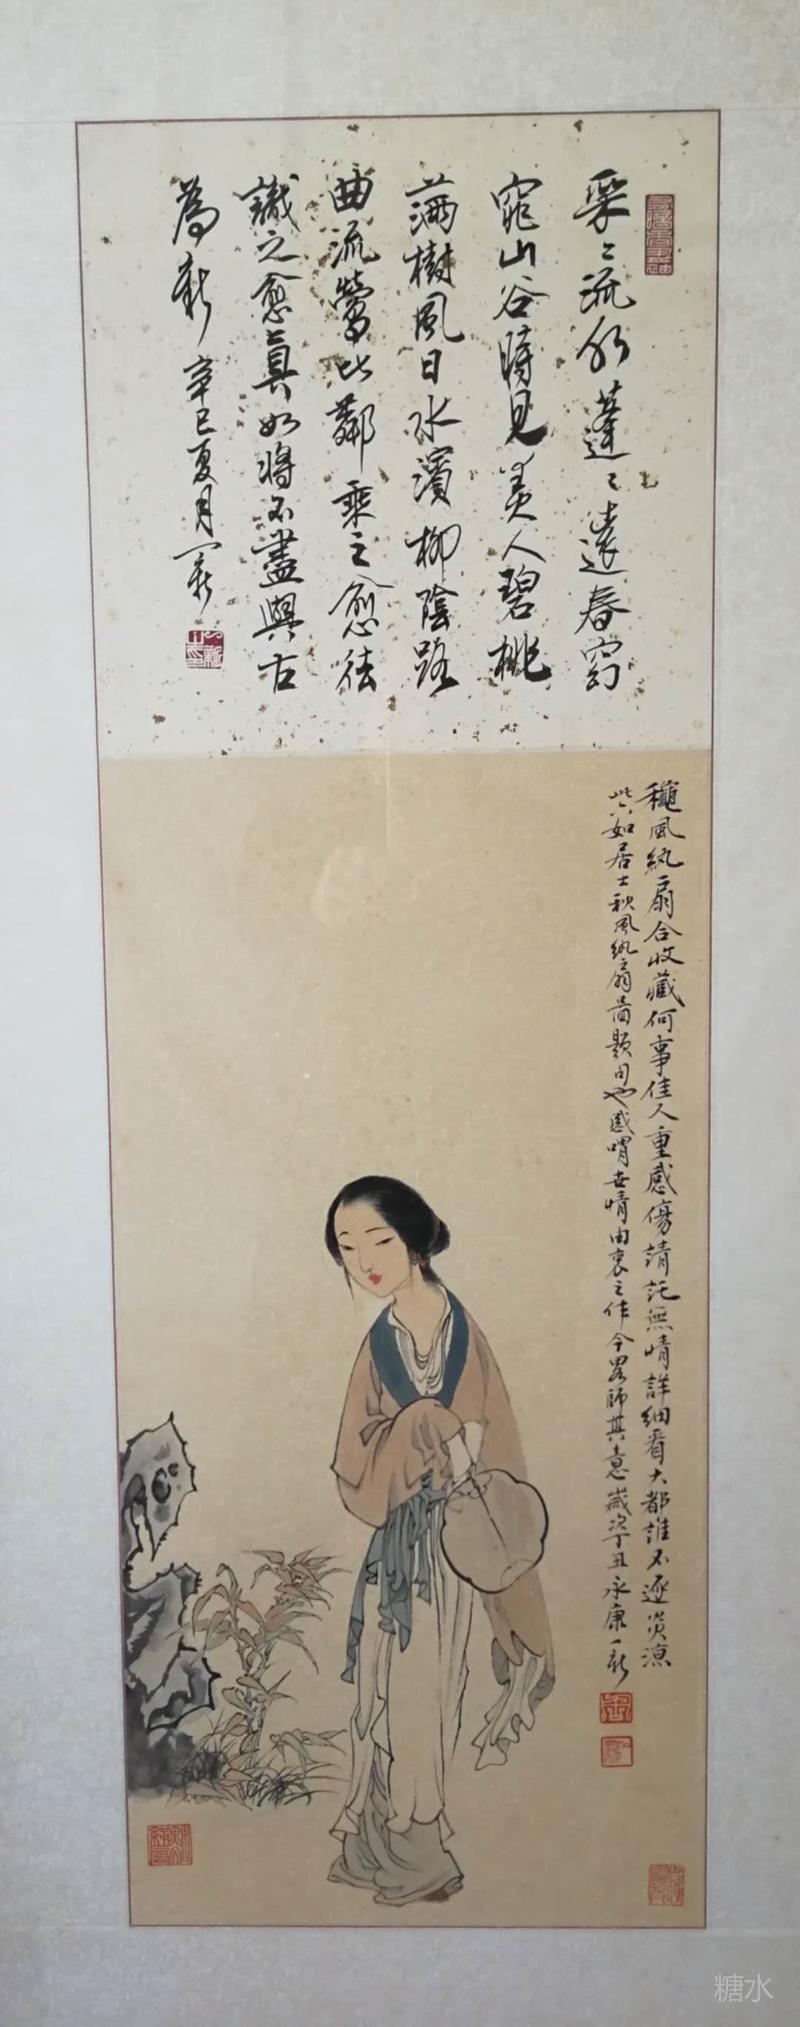 采〻流水蓬〻遠春窈
窕山谷時見美人碧桃
滿樹風日水濱柳陰路
曲流鶯比鄰乘之愈往
識之愈真如將不盡與古
為新 辛巳夏月一新
秋風紈扇合收藏何事佳人重感傷請託無情詳細看大都誰不逐炎涼
此六如居士秋風紈扇圖題句也感喟世情由衷之作今略師其意歲次丁丑永康一新
糖水